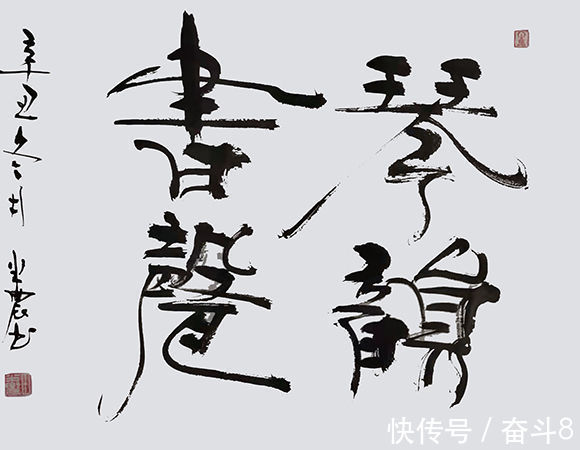 琴韻
書聲
辛丑冬
快传号 / 奋斗8